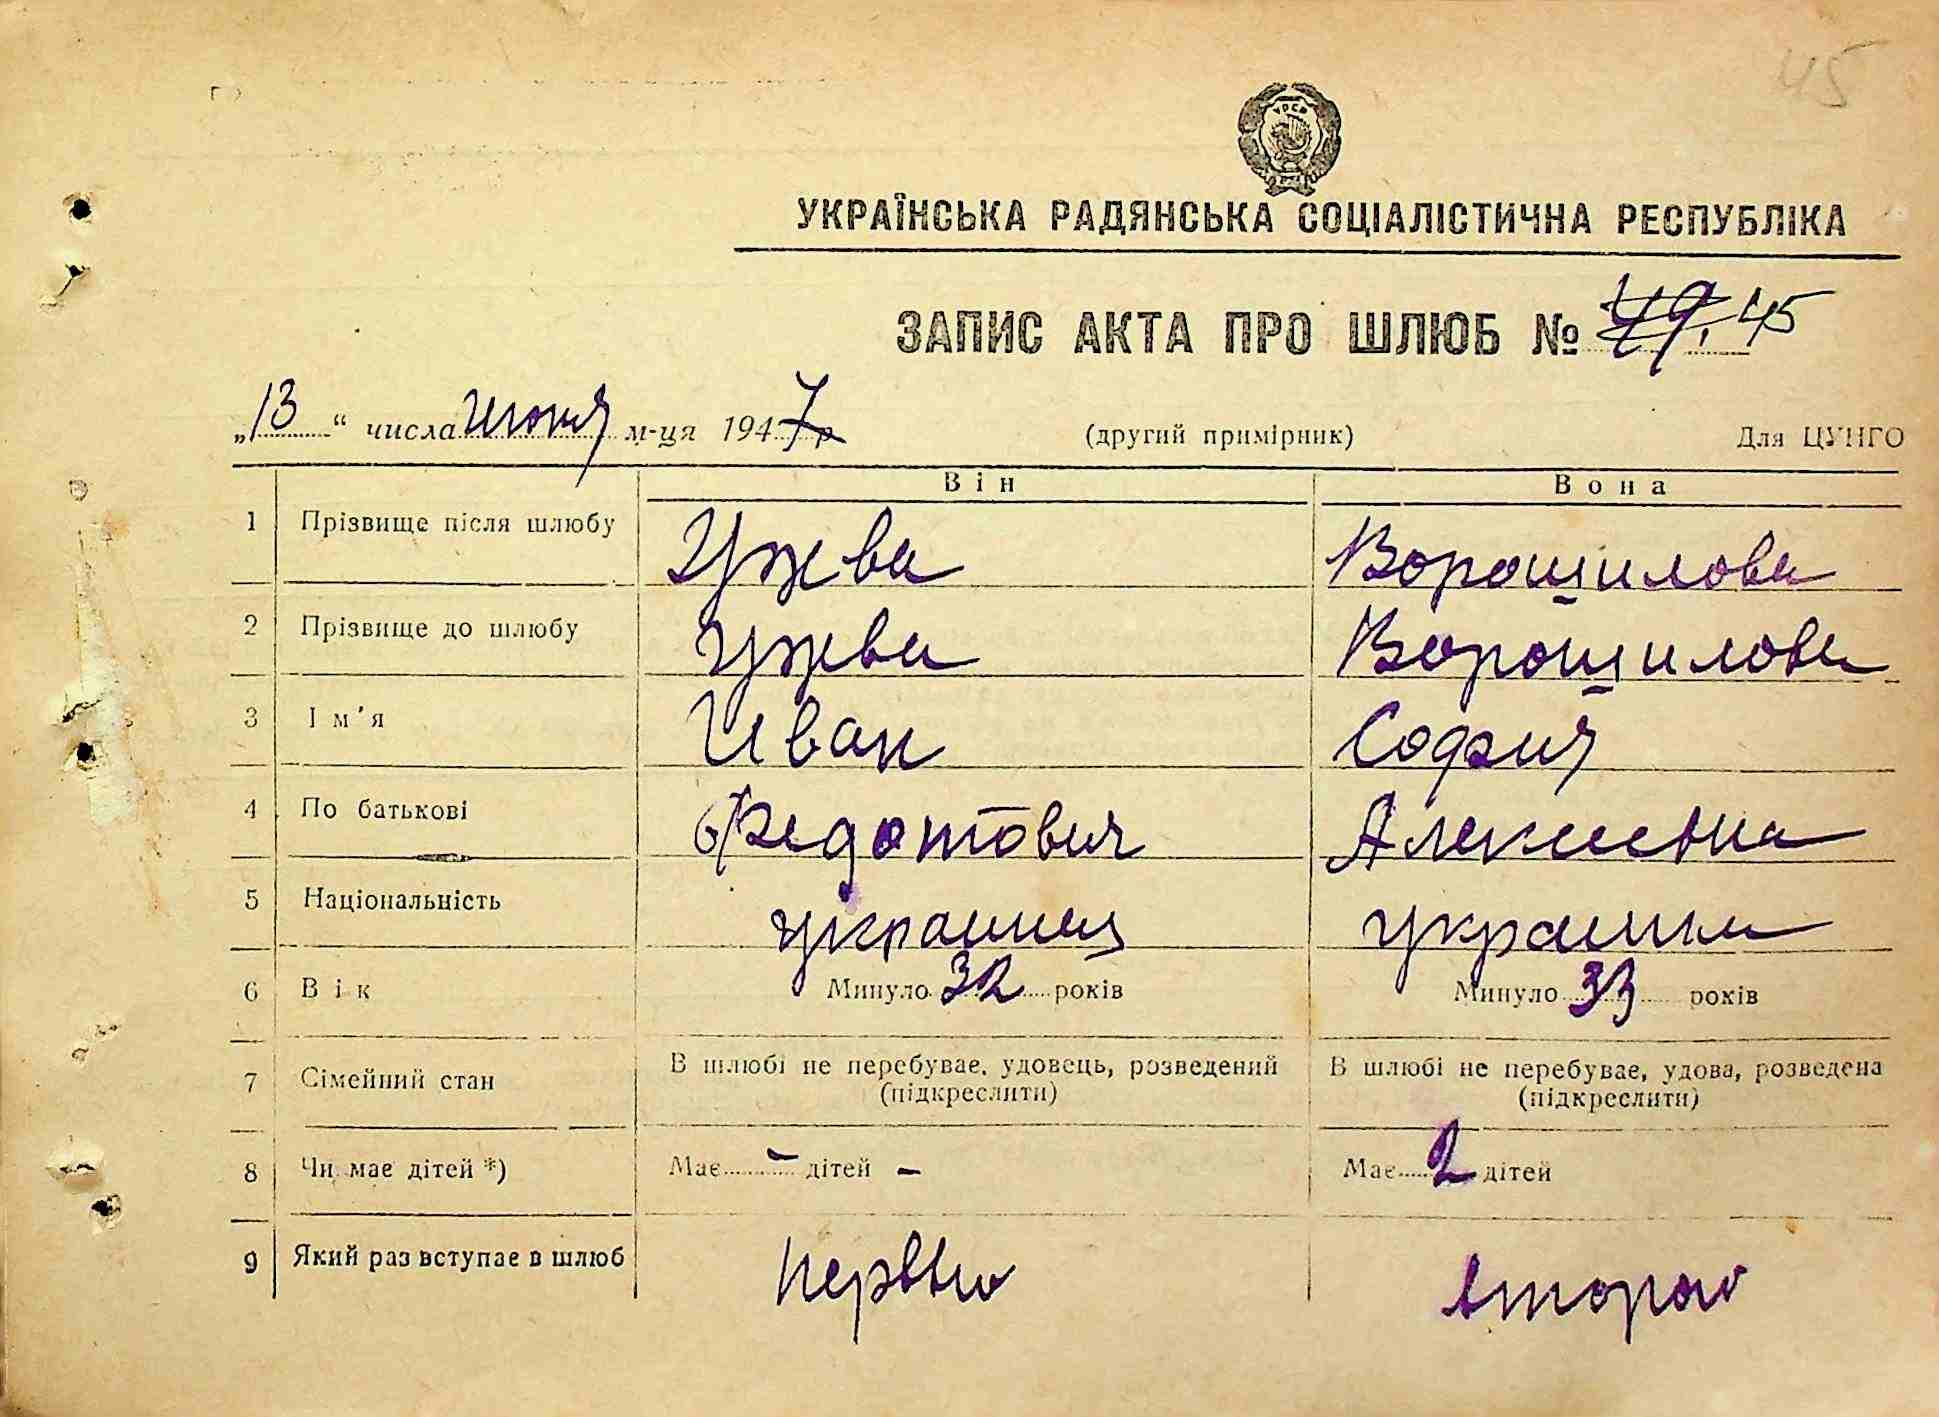 45
УРСР
УКРАЇНСЬКА РАДЯНСЬКА СОЦІАЛІСТИЧНА РЕСПУБЛІКА
ЗАПИС АКТА ПРО ШЛЮБ № 49. 45
„13“ числа Июня м-ця 1947 р (другий примірник) Для ЦУНГО
Він Вона
1 Прізвище після шлюбу Ужва Ворошилова
2 Прізвище до шлюбу Ужва Ворошилова
3 Ім'я Иван София
4 По батькові Федотович Алексеевна
5 Національність украинец украинка
6 Вік Минуло 32 років Минуло 33 років
7 Сімейний стан В шлюбі не перебуває, удовець, розведений В шлюбі не перебуває, удова, розведена
(підкреслити) (підкреслити)
8 Чи має дітей *) Має - дітей - Має 2 дітей
9 Який раз вступає в шлюб первый второй